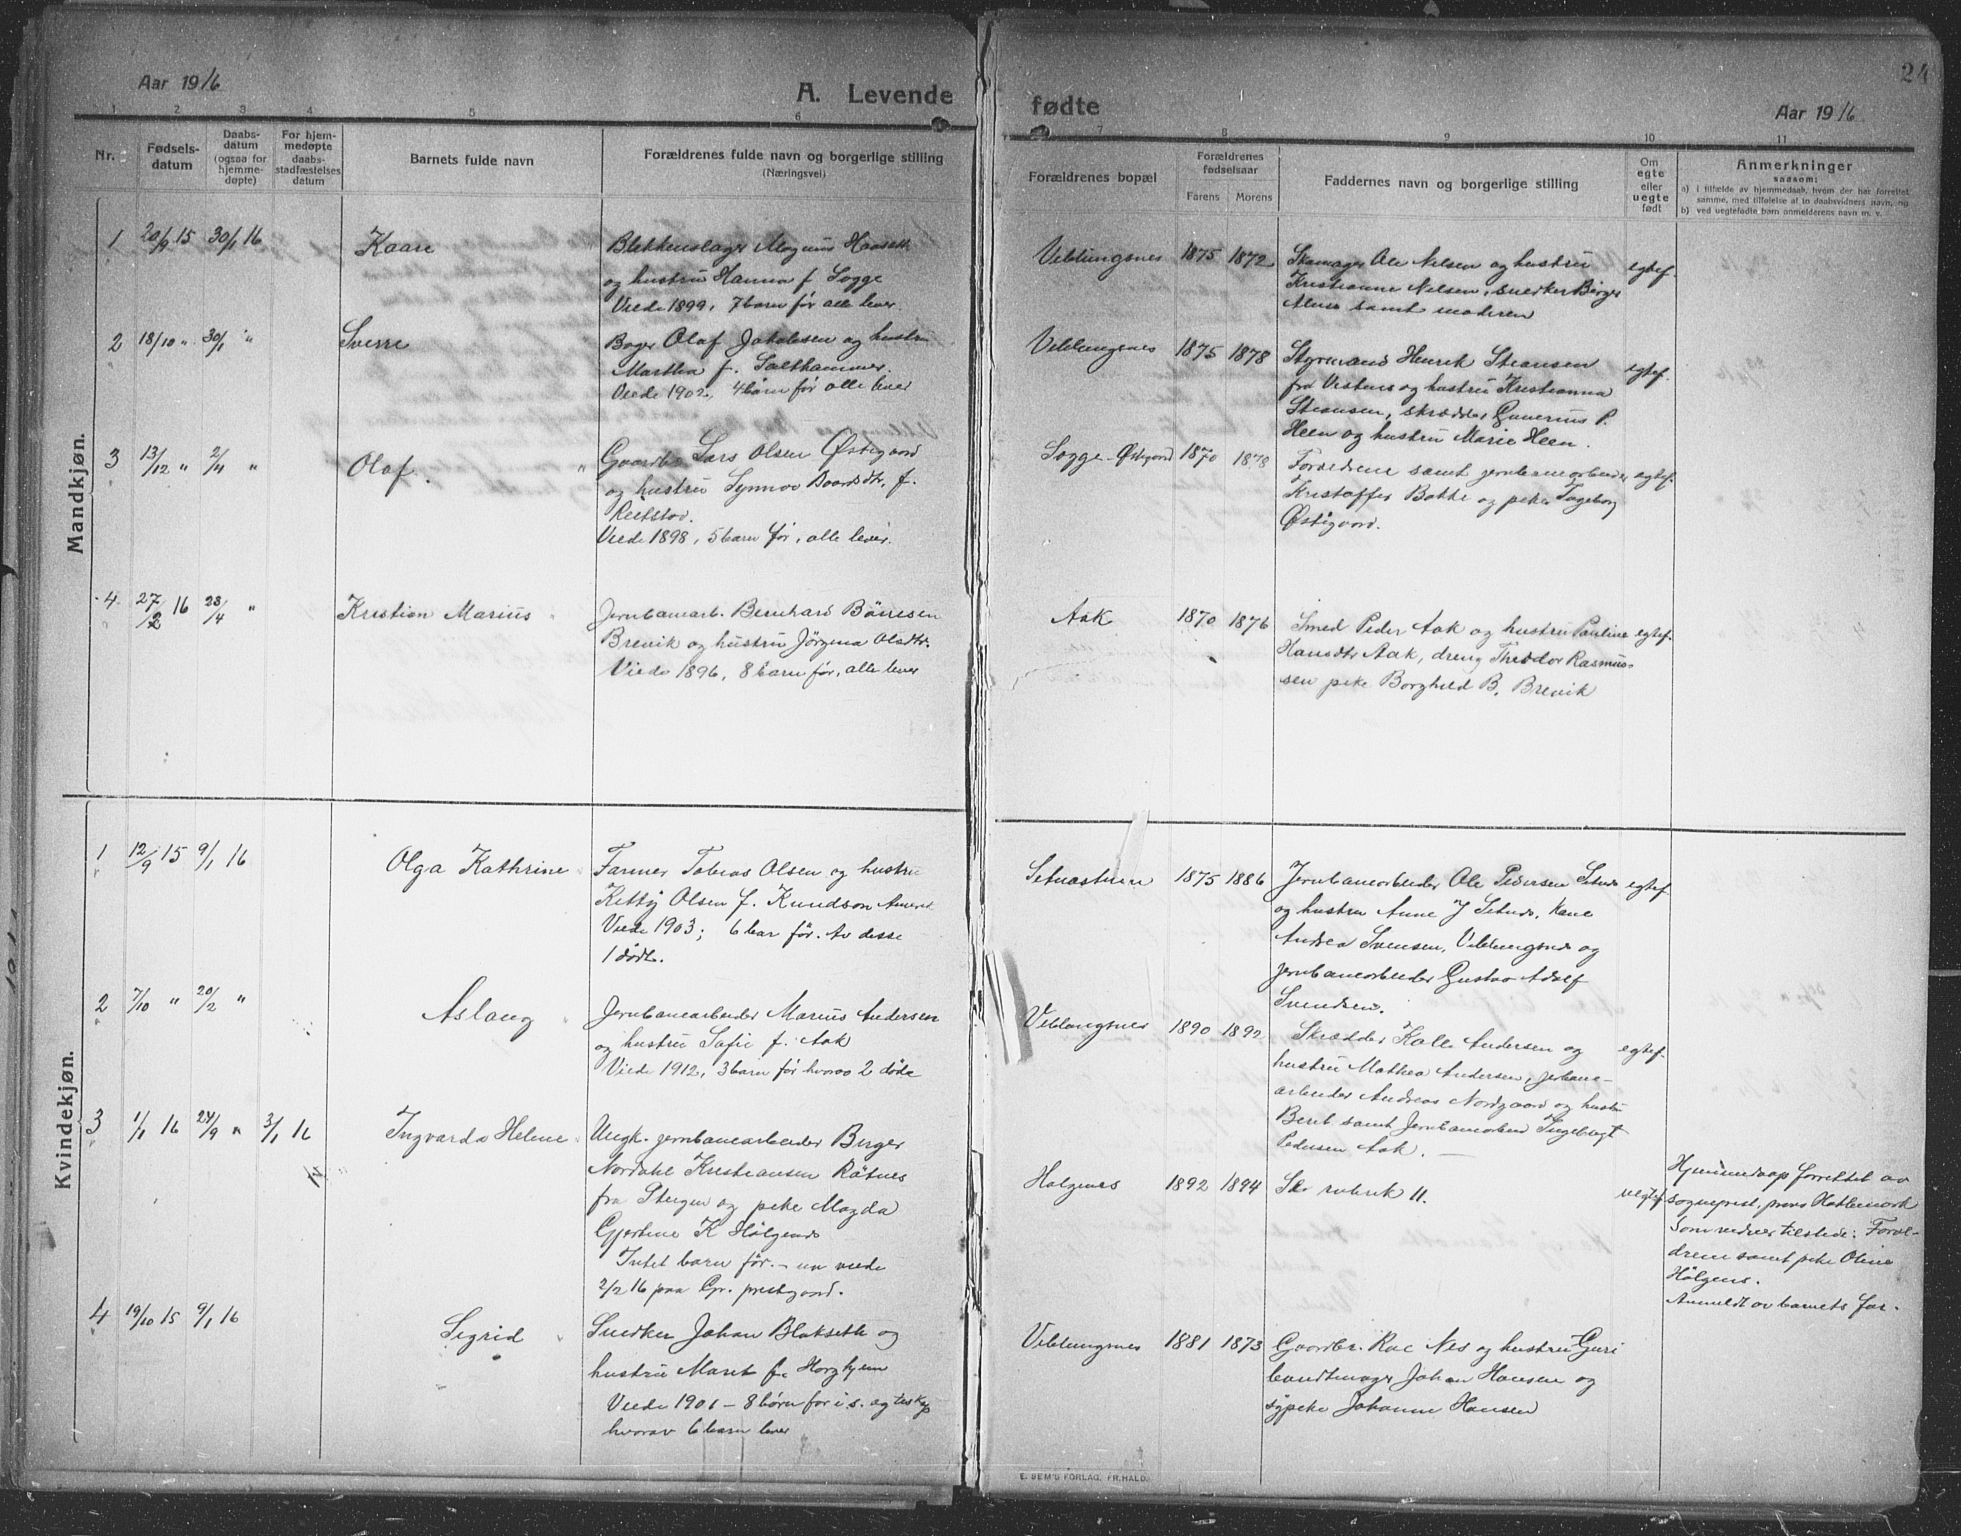 24
Aar 1916
A. Levende
fødte
Aar 1916
1 2 3 4 5 6 7 8 9 10 11
Nr.
Fødsels-
datum
Daabs-
datum
(ogsaa for
hjemme-
døpte)
For hjem-
medøpte
daabs-
stadfæstelses
datum
Barnets fulde navn
Forældrenes fulde navn og borgerlige stilling
(Næringsvei)
Forældrenes bopæl
Forældrenes
fødselsaar
Farens Morens
Faddernes navn og borgerlige stilling
Om
egte
eller
uegte
født
Anmerkninger
saasom:
a) i tilfælde av hjemmedaab, hvem der har forrettet
samme, med tilføielse af to daabsvidners navn, og
b) ved uegtefødte barn anmelderens navn m. v.
Mandkjøn.
1 20/9 15 30/1 16 Kaare
Blikkenslager Magnus Haaseth
og hustru Hanna f. Sogge
Viede 1899, 7 barn før alle lever.
Veblungsnes 1875 1872
Skomager Ole Nilsen og hustru
Kristianne Nilsen, snedker Birger
samt moderen
egtef.
2 18/10 " 30/1 " Sverre
Bager Olaf Jakobsen og hustru
Martha f. Salthammer.
Viede 1902, 4 barn før alle lever
Veblungsnes 1875 1878
Styrmand Henrik Steansen
fra Vestnes og hustru Kristianna
Steansen, skrædder Gunerius P.
Heen og hustru Marie Heen.
egtef.
3 13/12 " 2/4 " Olaf.
Gaardbr. Lars Olsen Østigaard
og hustru Synnøv Baardsdtr. f.
Viede 1898, 5 barn før, alle lever.
Sogge-Østigaard 1870 1878
Forældrene samt jernbanearbeider
Kristoffer Bakke og pike Ingeborg
Østigaard.
egtef.
4 27/2 16 23/4 " Kristian Marius
Jernbanearb. Bernhard Börresen
Brevik og hustru Jörgina Olsdtr.
Viede 1896, 8 barn før, alle lever
Aak 1870 1876
Smed Peder Aak og hustru Pauline
Hansdtr Aak, dreng Theodor Rasmus-
sen pike Borghild B. Brevik
egtef.
Kvindekjøn.
1 12/9 15 9/1 16 Olga Kathrine
Farmer Tobias Olsen og hustru
Kitty Olsen f. Knudson Amerik.
Viede 1903; 6 bar før. Av disse
1 dødt.
Setnastuen 1875 1886
Jernbanearbeider Ole Pedersen Setnes
og hustru Anne J Setnes, Kone
Andrea Svensen, Veblungsnes og
jernbanearbeider Gustav Adolf
Svendsen.
egtef.
2 7/10 " 20/2 " Aslaug
Jernbanearbeider Marius Andersen
og hustru Sofie f. Aak
Viede 1912, 3 barn før hvorav 2 døde
Veblungsnes 1890 1892
Skrædder Kalle Andersen og
hustru Mathea Andersen, jerbane-
arbeider Andreas Nordgaard og hustru
Berit samt Jernbanearbeid Ingebrigt
Pedersen Aak.
egtef.
3 1/1 16 24/9 " 3/1 16 Ingvarda Helene
Ungk. jernbanearbeider Birger
Nordahl Kristiansen Råtnes
fra Steigen og pike Magda
Gjertine K Hølgenes
Intet barn før. - un viede
2/2 16 paa Gr. prestgaard.
Holgenes 1892 1894
Se rubrik 11.
uegtef.
Hjemmedaap forrettet av
sogneprest, prove Hatlemark
Som vidner tilstede: Foræl-
drene samt pike Oline
Hölgens.
Anmeldt av barnets far.
4 19/10 15 9/1 16 Sigrid
Snedker Johan Blakseth og
hustru Marit f. Horgheim
Viede 1901 - 8 børn før i s. og
hvorav 6 barn lever
Veblungsnes 1881 1873
Gaardbr. Nes og hustru Guri
bundtmager Johan Hansen og
sypike Johanne Hansen
E. SEM'S FORLAG, FR.HALD.